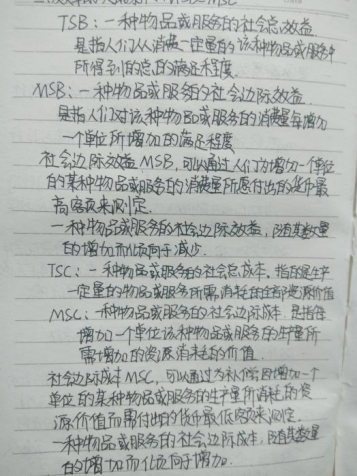 MSC
TSB：一种物品或服务的社会总效益
是指人们从消费一定量的该种物品或服务中
所得到的总的满足程度.
MSB：一种物品或服务的社会边际效益.
是指人们对该种物品或服务的消费量每增加
一个单位所增加的满足程度
社会边际效益MSB,可以通过人们为增加一个单位
的某种物品或服务的消费量所愿付出的货币最
高客款来测定.
一种物品或服务的社会边际效益,随其数量
的增加而倾向于减少.
TSC：一种物品或服务的社会总成本.指的是生产
一定量的物品或服务所需消耗的全部资源价值
MSC：一种物品或服务的社会边际成本.是指每
增加一个单位该种物品或服务的生产量所
需增加的资源消耗的价值.
社会边际成本MSC,可以通过为补偿因增加一个
单位的某种物品或服务的生产量所消耗的资
源价值而需付出的货币最低客款来测定.
一种物品或服务的社会边际成本,随其数量
的增加而倾向于增加.